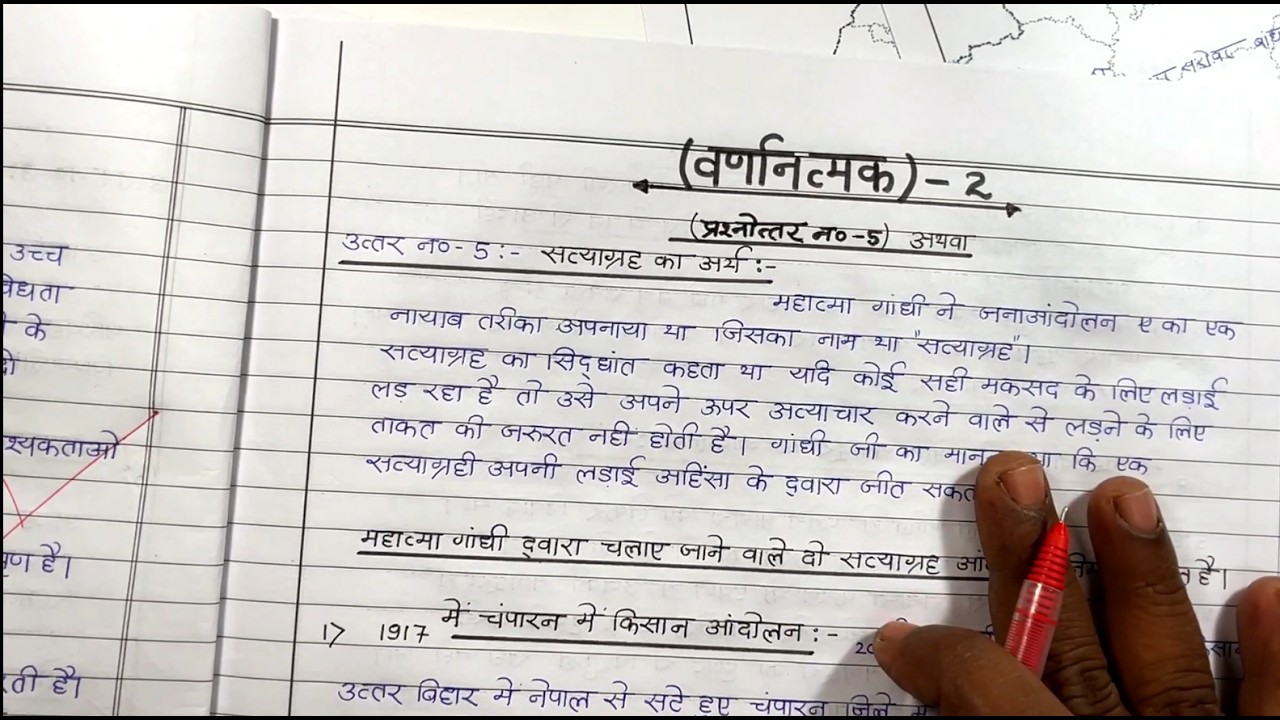 सरोवर बांध
(वर्णानित्मक) - 2
(प्रश्नोत्तर न० -5) अथवा
उत्तर न० - 5 :- सत्याग्रह का अर्थ :-
महात्मा गांधी ने जनाआंदोलन ए का एक
नायाब तरीका अपनाया था जिसका नाम था "सत्याग्रह"।
सत्याग्रह का सिद्धांत कहता था यदि कोई सही मकसद के लिए लड़ाई
लड़ रहा है तो उसे अपने ऊपर अत्याचार करने वाले से लड़ने के लिए
ताकत की जरुरत नही होती है। गांधी जी का मानना था कि एक
सत्याग्रही अपनी लड़ाई अहिंसा के द्वारा जीत सकत
महात्मा गांधी द्वारा चलाए जाने वाले दो सत्याग्रह त है।
1> 1917 में चंपारन में किसान आंदोलन :-
उत्तर बिहार में नेपाल से सटे हुए चंपारन जिले
उच्च
वेधता
के
श्यकताओ
है।
ती है।